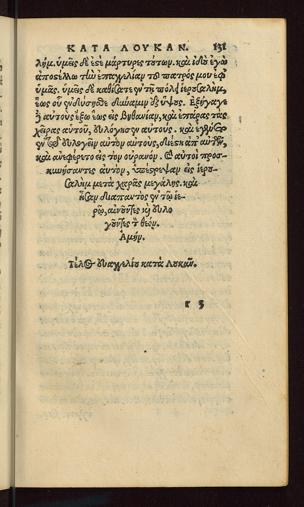 ΚΑΤΑ ΛΟΥΚΑΝ. 131
λήμ. ὑμεῖς δέ ἐςε μάρτυρες τούτων. καὶ ἰδοὺ ἐγὼ
ἀποςέλλω τὴν ἐπαγγελίαν τοῦ πατρός μου ἐφ᾽
ὑμᾶς. ὑμεῖς δὲ καθίσατε ἐν τῇ πόλει ἱερουσαλήμ,
ἕως οὗ ἐνδύσησθε δύναμιν ἐξ ὕψους. Ἐξήγαγε
δὲ αὐτοὺς ἔξω ἕως εἰς βηθανίαν, καὶ ἐπάρας τὰς
χεῖρας αὐτοῦ, εὐλόγησεν αὐτούς. καὶ ἐγένετο
ἐν τῷ εὐλογεῖν αὐτὸν αὐτούς, διέςη ἀπ᾽ αὐτῶν,
καὶ ἀνεφέρετο εἰς τὸν οὐρανόν. Καὶ αὐτοὶ προσ
κυνήσαντες αὐτὸν, ὑπέςρεψαν εἰς ἱερου
σαλὴμ μετὰ χαρᾶς μεγάλης. καὶ
ἦσαν διαπαντὸς ἐν τῷ ἱε
ρῷ, αἰνοῦντες καὶ εὐλο
γοῦντες τὸν θεόν.
Ἀμήν.
Τέλος εὐαγγελίου κατὰ Λουκᾶν.
r 3